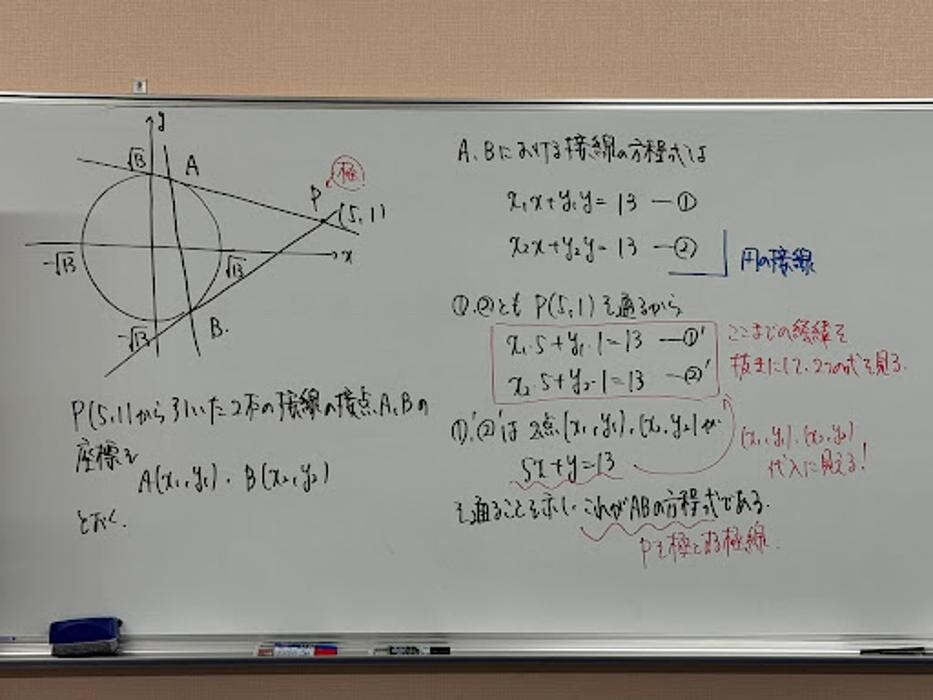 y
√13
A
極
P
(5,1)
x
-√13
√13
-√13
B.
P(5,1)から引いた2本の接線の接点A,Bの
座標を
A(x₁,y₁), B(x₂,y₂)
とおく.
A,Bにおける接線の方程式は
x₁x+y₁y=13 ―①
x₂x+y₂y=13 ―②
円の接線
①,②ともP(5,1)を通るから
x₁・5+y₁・1=13 ―①'
x₂・5+y₂・1=13 ―②'
ここまでの経緯を
抜きにして、2つの式を見る.
①',②'は2点(x₁,y₁),(x₂,y₂)が
5x+y=13
(x₁,y₁),(x₂,y₂)
代入に見える!
を通ることを示し、これがABの方程式である.
Pを極とする極線.